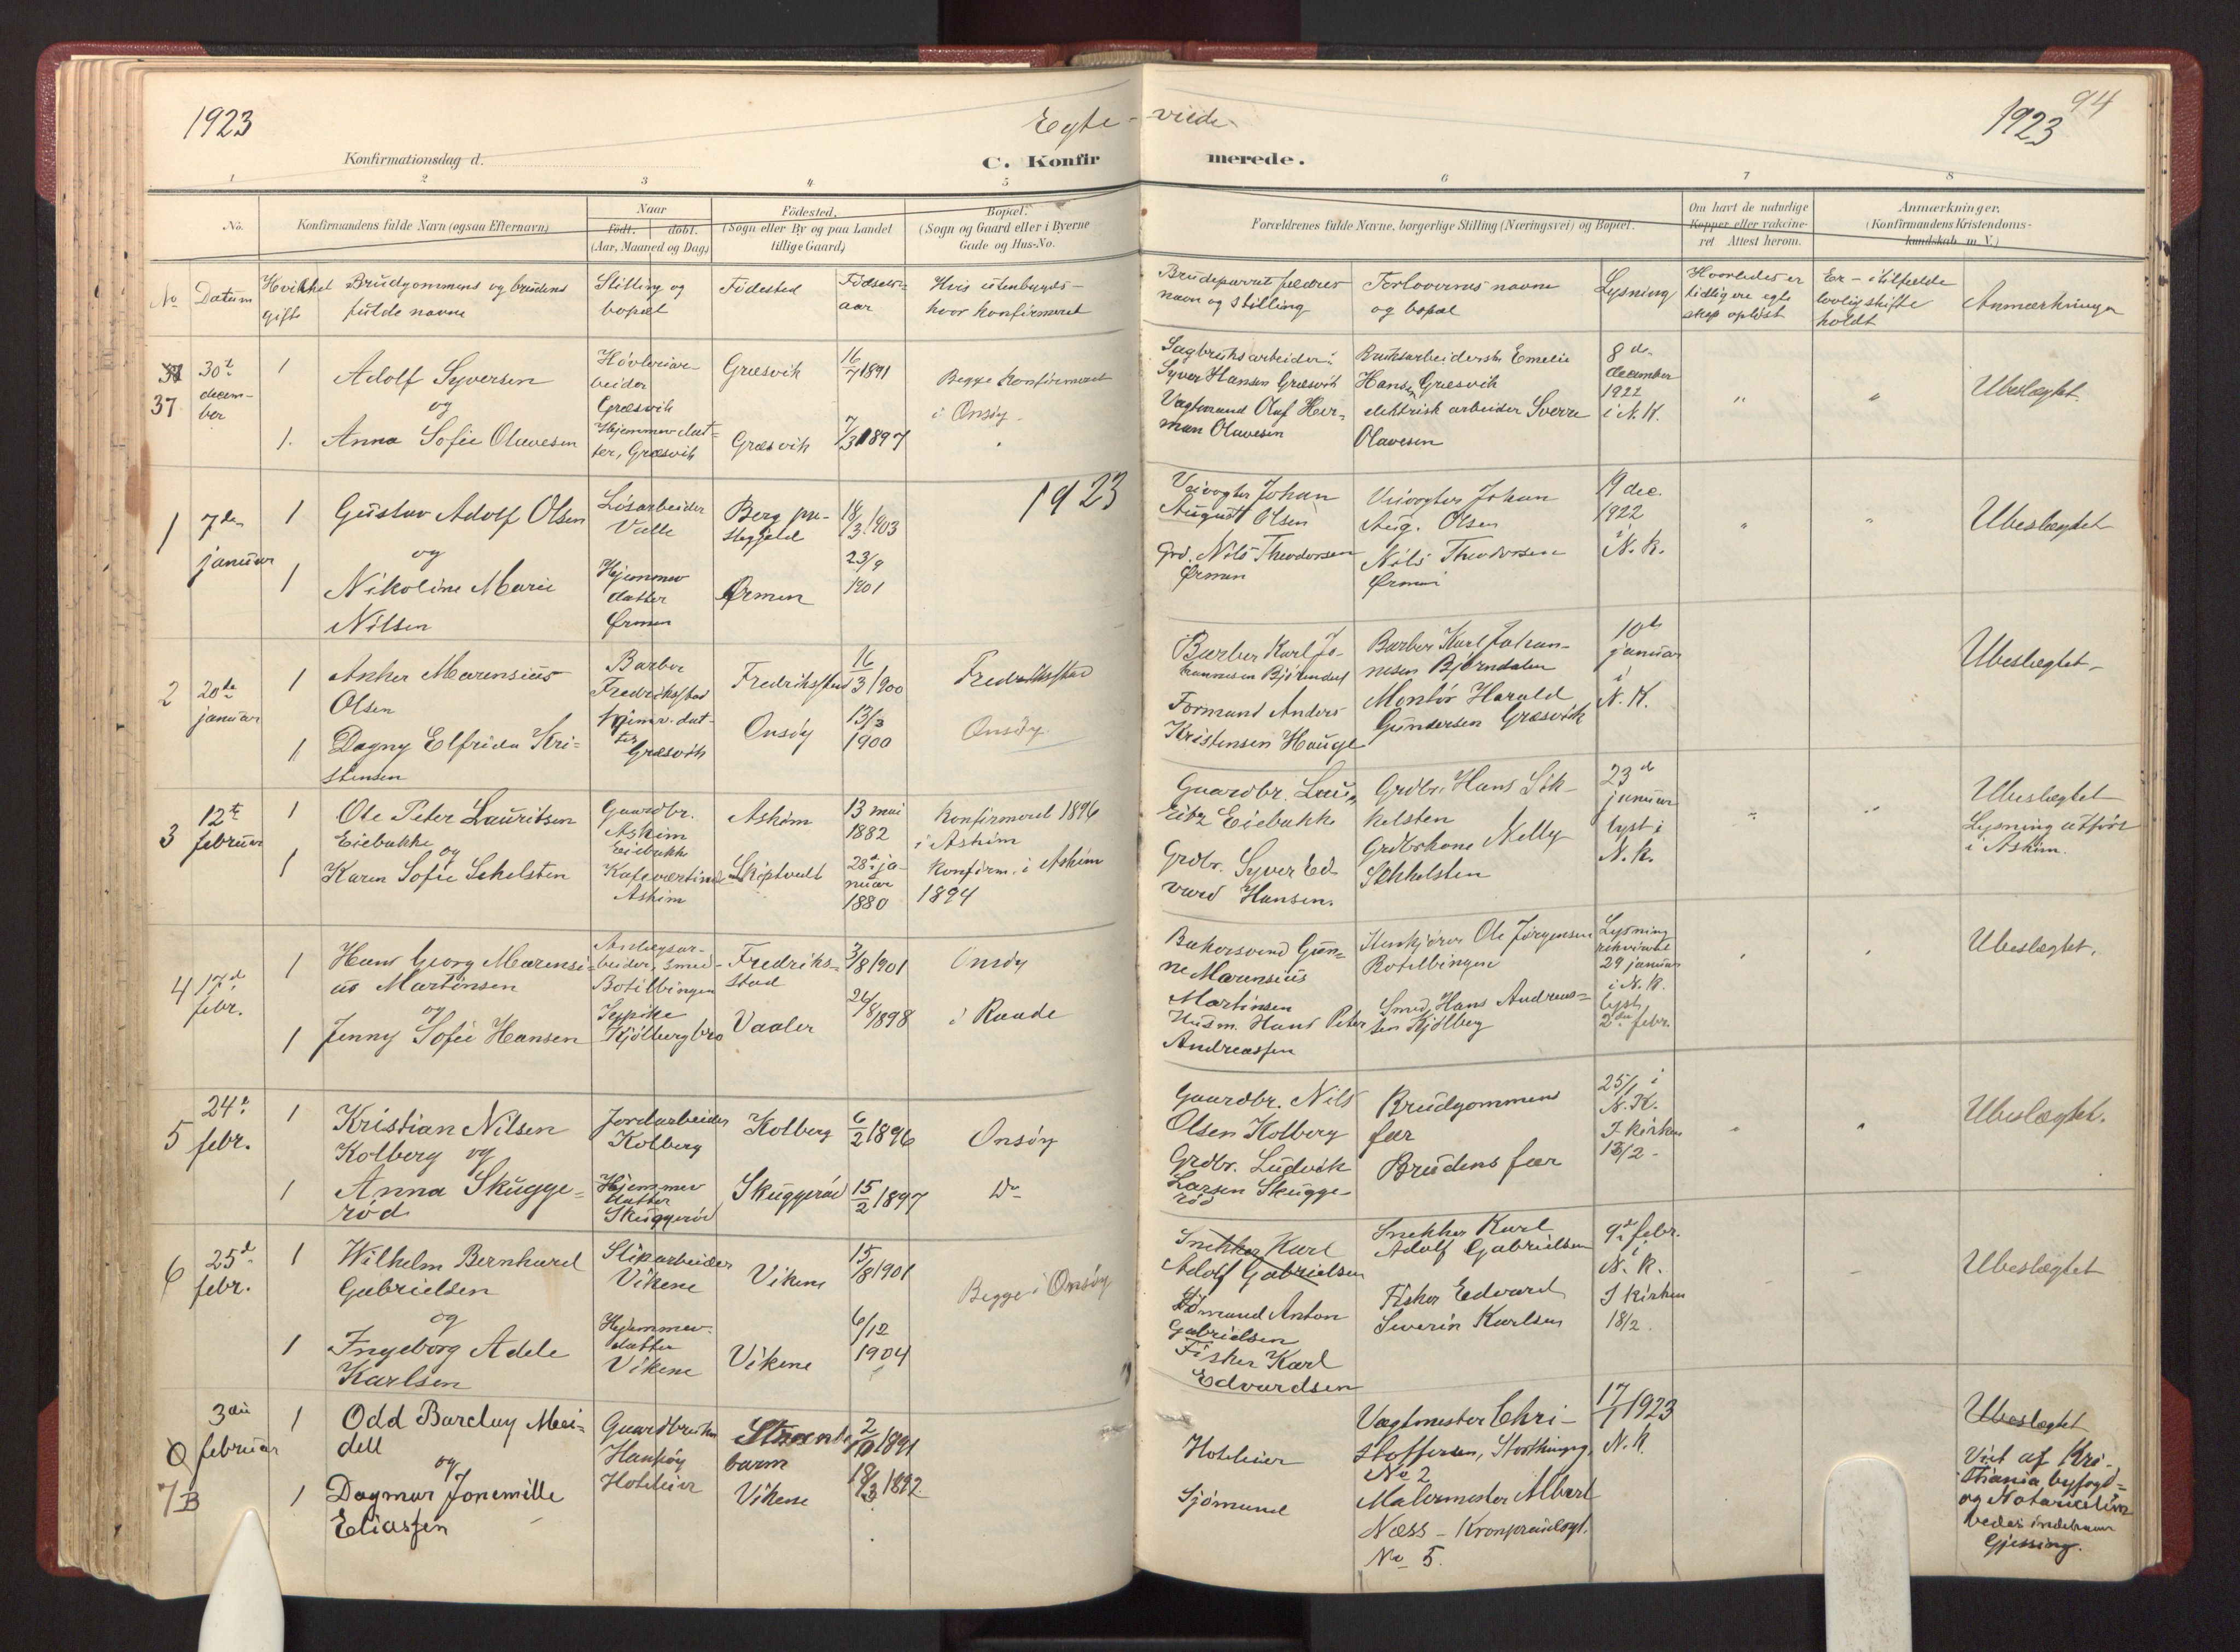 1923
Egte-viede
94
1923
Konfirmationsdag d.
C. Konfirmerede.
1 2 3 4 5 6 7 8
No. Konfirmandens fulde Navn (ogsaa Efternavn)
Naar
født. døbt.
(Aar, Maaned og Dag)
Fødested,
(Sogn eller By og paa Landet
tillige Gaard)
Bopæl.
(Sogn og Gaard eller i Byerne
Gade og Hus-No.
Forældrenes fulde Navne, borgerlige Stilling (Næringsvei) og Bopæl.
Om havt de naturlige
Kopper eller vakcine-
ret Attest herom.
Anmærkninger.
(Konfirmandens Kristendoms-
kundskab m. V.)
No Datum
Hvilket
gifte
Brudgommens og brudens
fulde navne
Stilling og
bopæl
Fødested
Fødsels-
aar
Hvis utenbygds-
hvor konfirmeret
Brudeparret fædres
navn og stilling
Forlovernes navne
og bopæl
Lysning
Hvorledes er
tidligere egte
skap opløst
Er - i tilfælde
lovlig skifte
holdt
Anmærkninger
37
30te
decem-
ber
1
Adolf Syversen
og
1. Anna Sofie Olavesen
Høvleriar-
beider
Græsvik
Hjemmev. dat-
ter, Græsvik
Græsvik
Græsvik
16/7 1891
7/3 1897
Begge konfirmeret
i Onsøy.
Sagbruksarbeider
Syver Hansen Græsvik
Vagtmand Oluf Her-
man Olavesen
Bruksarbeiderske Emelie
Hansen Græsvik
elektrisk arbeider Sverre
Olavesen
8de
december
1922
i N. K.
" "
Ubeslægtet.
1923
1 7de
januar
1 Gustav Adolf Olsen
og
1 Nikoline Marie
Nilsen
Løsarbeider
Valle
Hjemmev
datter
Ørmen
Berg pre-
stegjeld
Ørmen
18/3 1903
23/9
1901
Veivogter Johan
August Olsen
Grd. Nils Theodorsen
Ørmen
Veivogter Johan
Aug. Olsen
Nils Theodorsen
Ørmen
19 dec.
1922
i
N. K.
" "
Ubeslægtet
2 20de
januar
1 Anker Marensius
Olsen
1 Dagny Elfrida Kri-
stensen
Barber
Fredriksstad
Hjemv. dat-
ter Græsvik
Fredriksstad
Onsøy
16/3 1900
13/3
1900
Fredriksstad
Onsøy
Barber Karl Jo-
hannesen Bjørndal
Formand Anders
Kristensen Hauge
Barber Karl Johan-
nesen Bjørndalen
Montør Harald
Gundersen Græsvik
10de
januar
i
N. K.
Ubeslægtet
3 12te
februar
1 Ole Peter Lauritsen
Eiebakke
og
1 Karen Sofie Sekelsten
Gaardbr.
Askim
Eiebakke
Kafeværtinde
Askim
Askim
Skiptvedt
13 mai
1882
28de ja-
nuar
1880
Konfirmeret 1896
i Askim
Konfirm. i Askim
1894
Gaardbr. Lau-
ritz Eiebakke
Grdbr. Syver Ed
vard Hansen.
Grdbr. Hans Sik-
kelsten
Grdbrkone Nelly
Sekkelsten
23de
januar
lyst i
N. K.
" "
Ubeslægtet
Lysning utført
i Askim.
4 17de
febr.
1 Hans Georg Marensi-
us Martinsen
og
1 Jenny Sofie Hansen
Anlægsar-
beider, smed-
Botilbingen
Sypike
Kjølberg bro
Fredriks-
stad
Vaaler
3/8 1901
26/8 1898
Onsøy
i Raade
Bakersvend Gun-
ne Marensius
Martinsen
Husm. Hans Peter
Andreassen
Stenkjører Ole Jørgensen
Botilbingen
Smed Hans Andreas-
sen Kjølberg
Lysning
rekvireret
29 januar
i N. K.
lyst
2den febr.
Ubeslægtet.
5 24de
febr.
1 Kristian Nilsen
Kolberg og
1 Anna Skugge-
rød
Jordarbeider
Kolberg
Hjemmev
datter
Skuggerød
Kolberg
Skuggerød
6/2 1896
15/2 1897
Onsøy
Do
Gaardbr. Nils
Olsen Kolberg
Grdbr. Ludvik
Larsen Skugge-
rød
Brudgommens
far
Brudens far
25/1 i
N. K.
I kirken
13/2 -
" "
Ubeslægtet.
6 25de
febr.
1 Wilhelm Bernhard
Gabrielsen
og
1 Ingeborg Adele
Karlsen
Sliparbeider
Vikene
Hjemmev.
datter
Vikene
Vikene
Vikene
15/8 1901
6/12
1904
Begge i Onsøy
Snekker Karl
Adolf Gabrielsen
Sømand Anton
Gabrielsen
Fisker Karl
Edvardsen
Snekker Karl
Adolf Gabrielsen
Fisker Edvard
Severin Karlsen
9de febr.
i
N. K.
I kirken
18/2.
Ubeslægtet
3die
februar
7B
1 Odd Barclay Mei-
dell
og
1 Dagmar Jonemille
Eliassen
Gaardbruker
Hankøy
Hoteleier
Strande
barm
Vikene
2/10 1891
18/3 1892
Hoteleier
Sjømand
Vagtmester Chri-
stoffersen, Storthingsg.
No 2
Malermester Albert
Næss - Kronprindsgt.
No 5.
17/1 1923
N. K.
Ubeslægtet
Viet af Kri-
stiania byfogd-
og Notarialkon
vedes indehaver
Gjessing.